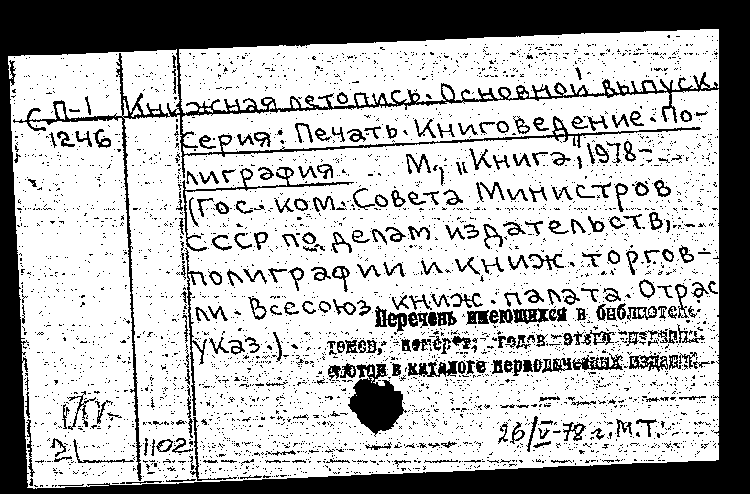 С П-1 Книжная летопись. Основной выпуск.
1246 Серия: Печать. Книговедение. По-
лиграфия. М., „Книга", 1978-
(Гос. ком. Совета Министров
СССР по делам издательств,
полиграфии и книж. торгов-
ли. Всесоюз. книж. палата. Отрас
указ.).
Перечень имеющихся в библиотеке
томов, номеров, годов этого издания
в каталоге периодических изданий.
26/V-78 г. М.Т.
21 1102